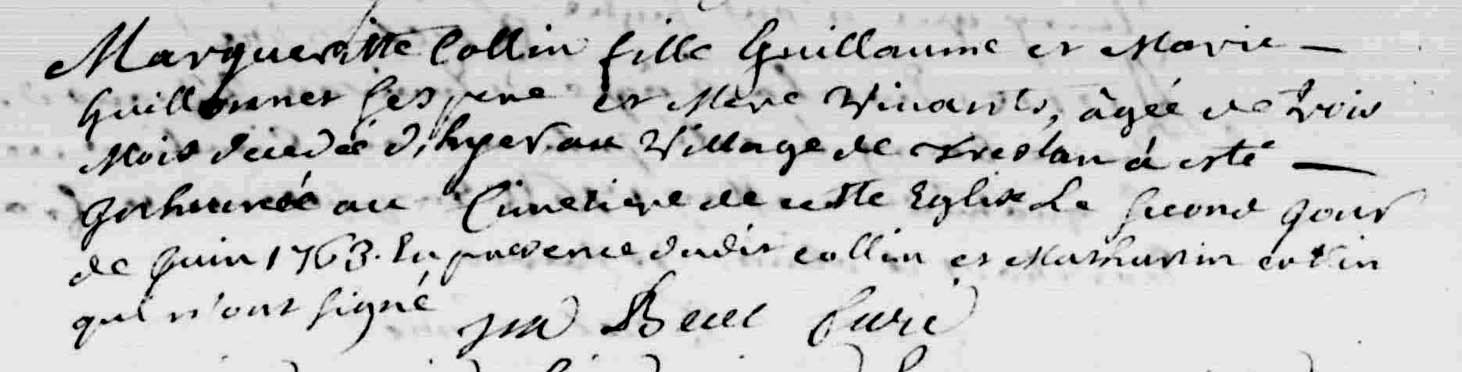 Margueritte Collin fille Guillaume et Marie –
Guillonnet ses pere et Mere Vivants, âgée de trois
Mois decedée d'hyer au Village de Treslan á esté —
Inhumée au Cimetiere de cette Eglise Le second jour
de Juin 1763. En presence dudit collin et Mathurin collin
qui n'ont signé Curé